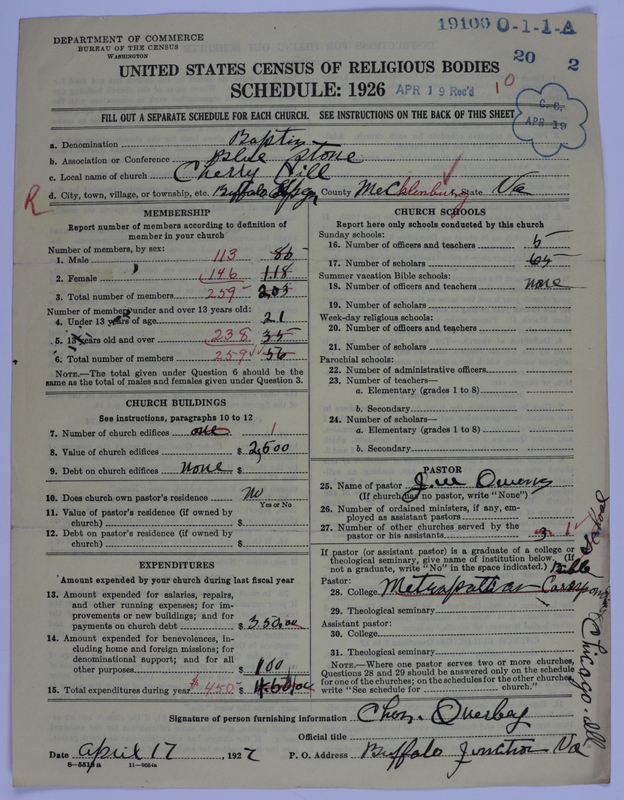 19100 O-1-1-A
DEPARTMENT OF COMMERCE
BUREAU OF THE CENSUS
WASHINGTON
20 2
UNITED STATES CENSUS OF RELIGIOUS BODIES
SCHEDULE: 1926 APR 19 Rec'd 10
C. C.
APR 19
FILL OUT A SEPARATE SCHEDULE FOR EACH CHURCH. SEE INSTRUCTIONS ON THE BACK OF THIS SHEET
a. Denomination Baptist
b. Association or Conference Blue Stone
c. Local name of church Cherry Hill
R
d. City, town, village, or township, etc. Buffalo County Mecklenburg State Va
MEMBERSHIP
Report number of members according to definition of
member in your church
Number of members, by sex:
1. Male 113 86
2. Female 146 118
3. Total number of members 259 203
Number of members under and over 13 years old:
4. Under 13 years of age 21
5. 13 years old and over 238 35
6. Total number of members 259 56
NOTE.—The total given under Question 6 should be
same as the total of males and females given under Question 3.
CHURCH BUILDINGS
See instructions, paragraphs 10 to 12
7. Number of church edifices one 1
8. Value of church edifices $ 2,500
9. Debt on church edifices none $
10. Does church own pastor's residence No
Yes or No
11. Value of pastor's residence (if owned by
church) $
12. Debt on pastor's residence (if owned by
church) $
EXPENDITURES
Amount expended by your church during last fiscal year
13. Amount expended for salaries, repairs,
and other running expenses; for im-
provements or new buildings; and for
payments on church debt $ 350.00
14. Amount expended for benevolences, in-
cluding home and foreign missions; for
denominational support; and for all
other purposes $ 100
15. Total expenditures during year $ 450
CHURCH SCHOOLS
Report here only schools conducted by this church
Sunday schools:
16. Number of officers and teachers 5
17. Number of scholars 65
Summer vacation Bible schools:
18. Number of officers and teachers none
19. Number of scholars
Week-day religious schools:
20. Number of officers and teachers
21. Number of scholars
Parochial schools:
22. Number of administrative officers
23. Number of teachers—
a. Elementary (grades 1 to 8)
b. Secondary
24. Number of scholars—
a. Elementary (grades 1 to 8)
b. Secondary
PASTOR
25. Name of pastor Owens
(If church has no pastor, write "None")
26. Number of ordained ministers, if any, em-
ployed as assistant pastors
27. Number of other churches served by the
pastor or his assistants 3
If pastor (or assistant pastor) is a graduate of a college or
theological seminary, give name of institution below. (If
not a graduate, write "No" in the space indicated.) Bible
Pastor:
28. College Metropolitan
29. Theological seminary
Assistant pastor:
30. College
31. Theological seminary
NOTE.—Where one pastor serves two or more churches,
Questions 28 and 29 should be answered only on the schedule
for one of the churches; on the schedules for the other churches
write "See schedule for church."
Chicago. Ill
Signature of person furnishing information Chas. Overbey
Official title
Date April 17, 1927 P. O. Address Buffalo Junction Va
8-5519a 11-9554a